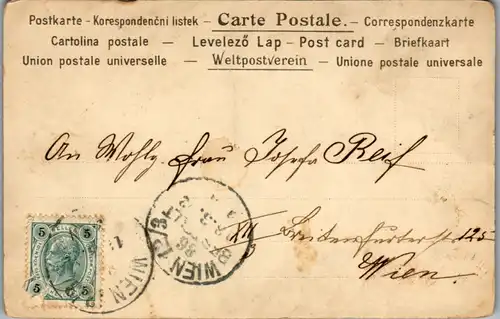 Postkarte - Korespondenční listek - Carte Postale. - Correspondenzkarte
Cartolina postale - Levelező Lap - Post card - Briefkaart
Union postale universelle - Weltpostverein - Unione postale universale
An Wohlg. Frau Josefa Reif
XII Breitenfurterstr 125
Wien.
5 5
5 5
WIEN
WIEN